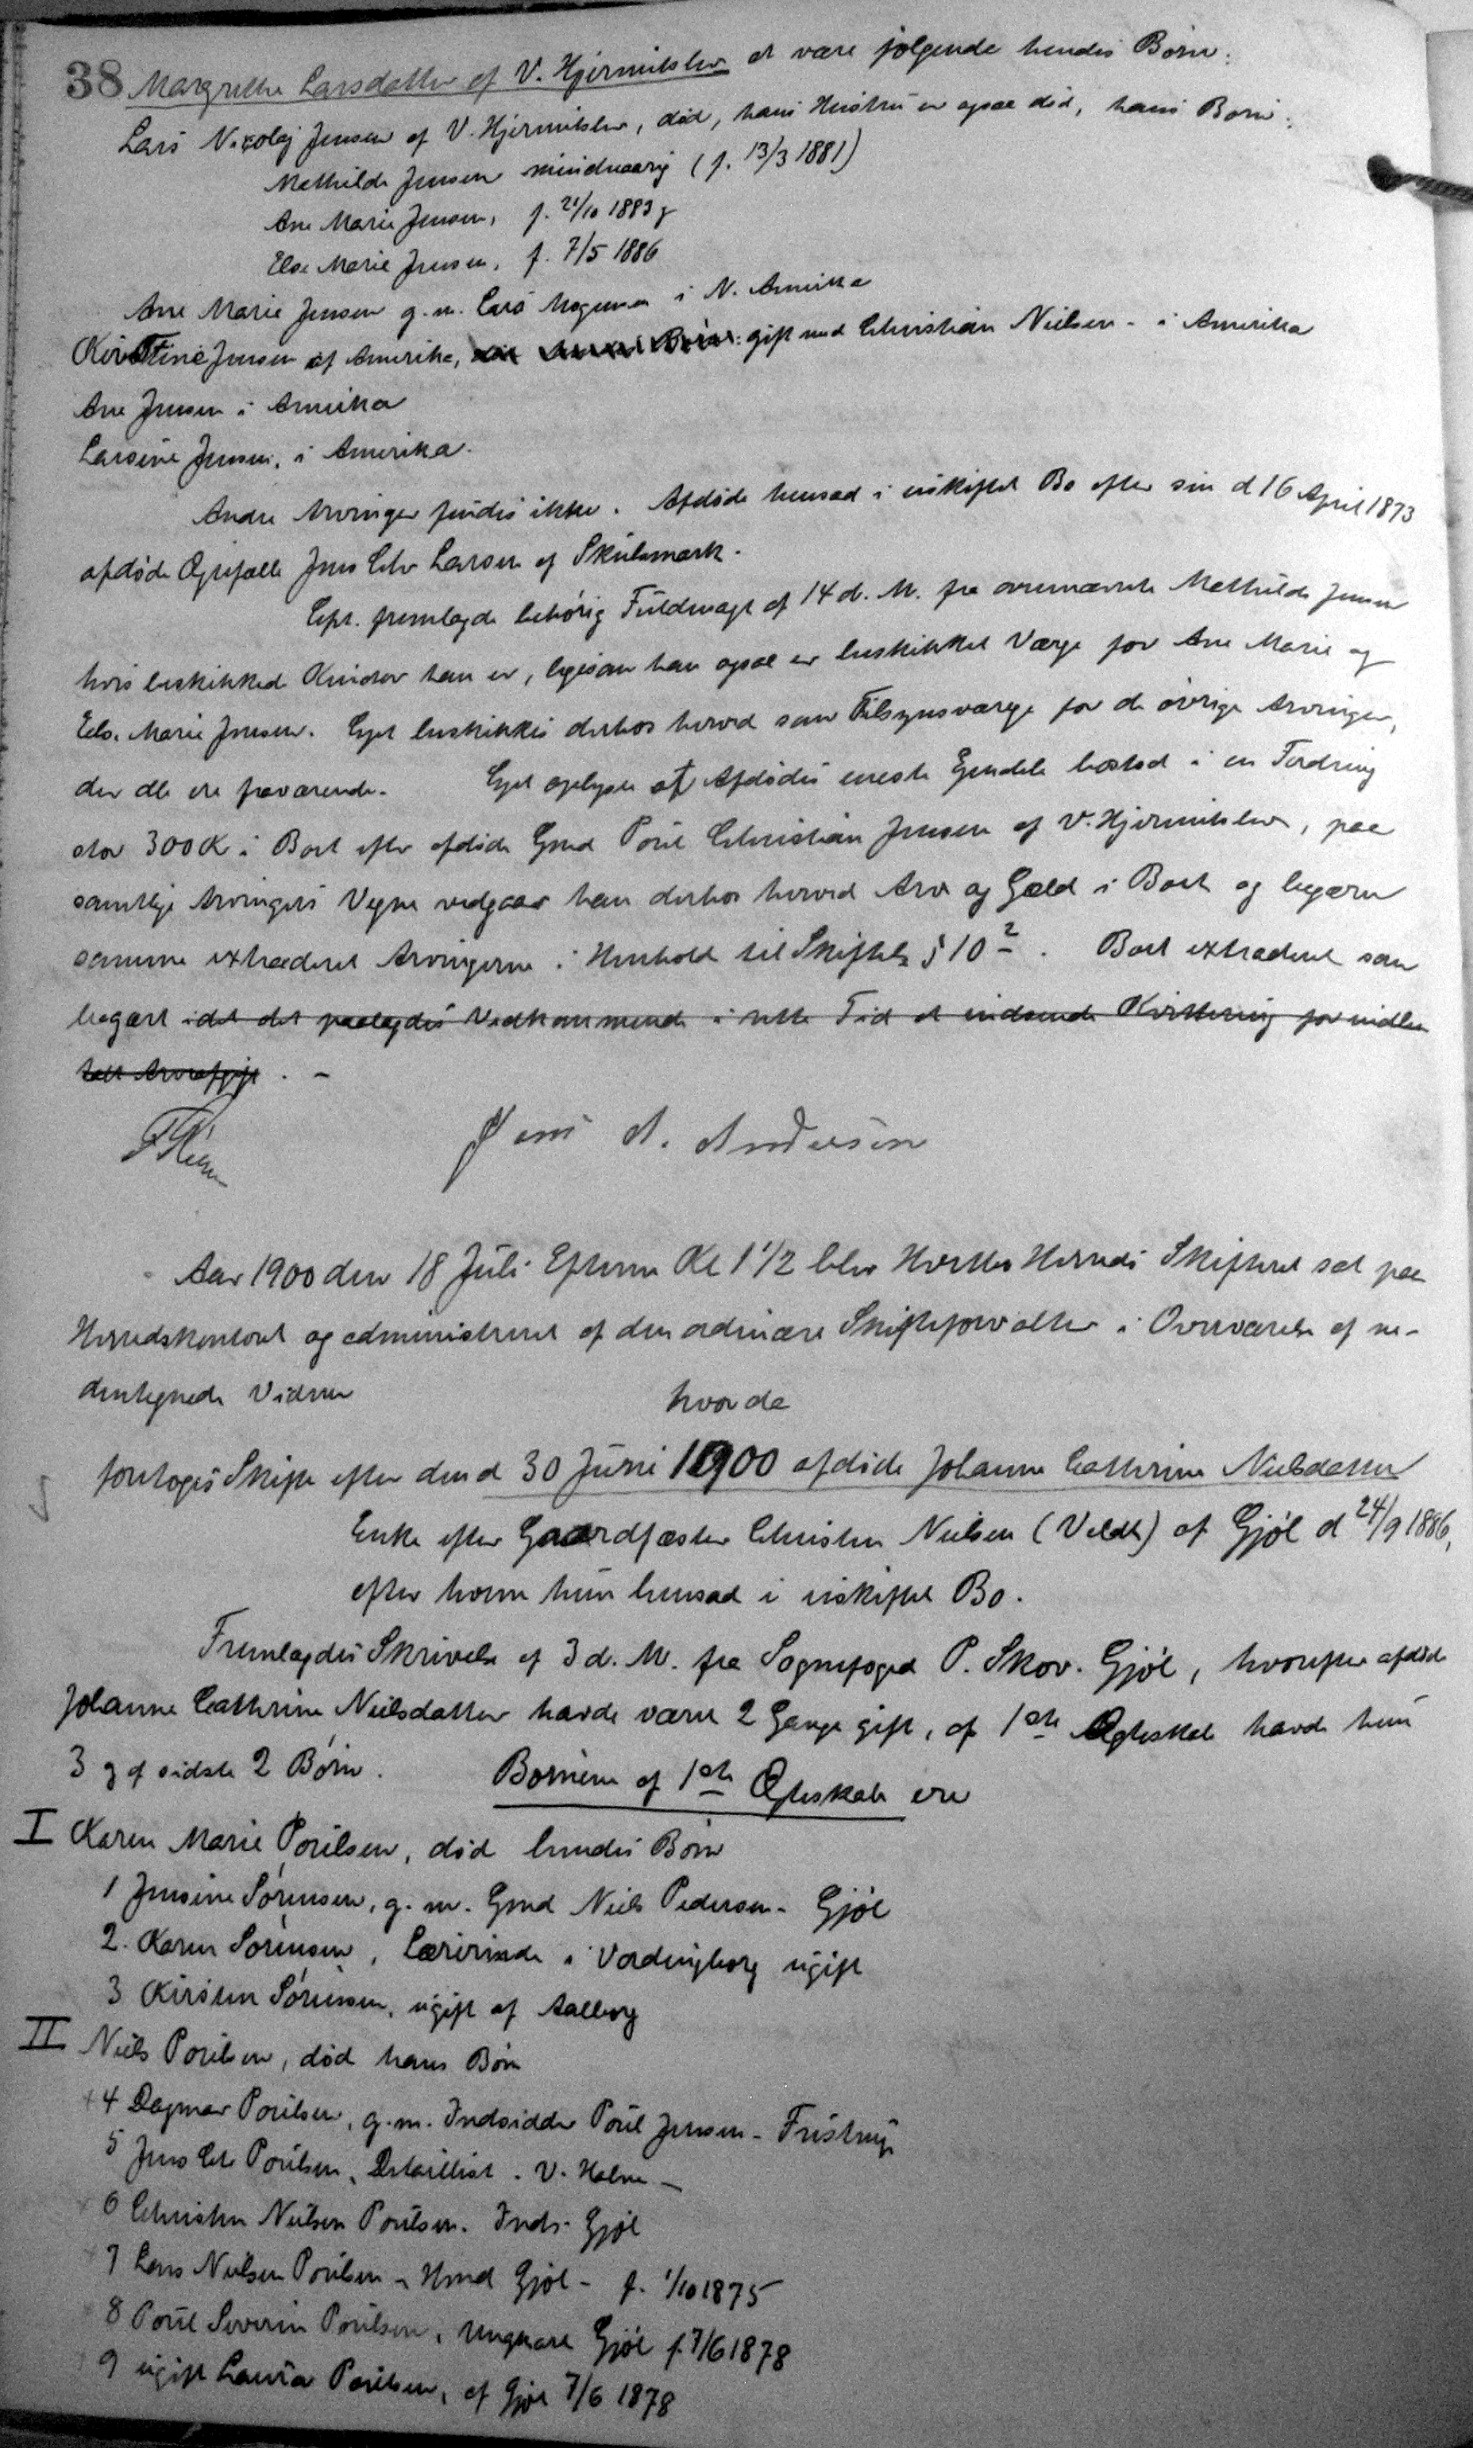 38 Margrethe Larsdatter af V. Hjermitslev at være følgende hendes Børn:
Lars Nikolaj Jensen af V. Hjermitslev, død, hans Hustru er ogsaa død, hans Børn:
Mathilde Jensen mindreaarig (f. 13/3 1881)
Ane Marie Jensen, f. 21/10 1883 og
Else Marie Jensen, f. 7/5 1886
Ane Marie Jensen g.m. Lars Mogensen i N. Amerika
Kirstine Jensen af Amerika, gift med Christian Nielsen - i Amerika
Ane Jensen i Amerika
Larsine Jensen, i Amerika.
Andre Arvinger findes ikke. Afdøde hensad i uskiftet Bo efter sin d 16 April 1873
afdøde Ægtefælle Jens Chr Larsen af Skulsmark.
Cpt. fremlagde behørig Fuldmagt af 14 d. M. fra ovennævnte Mathilde Jensen
hvis beskikkede Kurator han er, ligesom han ogsaa er beskikket Værge for Ane Marie og
Else Marie Jensen. Cpt beskikkes derhos herved som Tilsynsværge for de øvrige Arvinger,
der alle ere fraværende. Cpt oplyste at Afdødes eneste Ejendele bestod i en Fordring
stor 300 K i Boet efter afdøde Gmd Poul Christian Jensen af V. Hjermitslev, paa
samtlige Arvingers Vegne vedgaar han derhos herved Arv og Gæld i Boet og begærer
samme extraderet Arvingerne i Henhold til Skiftel. § 10². Boet extraderet som
begært idet det paalagdes Vedkommende i rette Tid at indsende Kvittering for indbe
talt Arveafgift. -
Jens A. Andersen
Aar 1900 den 18 Juli Efterm Kl 1 1/2 blev Hvetbo Herreds Skifteret sat paa
Herredskontoret og administreret af den ordinære Skifteforvalter i Overværelse af ne-
dentegnede Vidner
hvor da
foretoges Skifte efter den d 30 Juni 1900 afdøde Johanne Cathrine Nielsdatter
Enke efter Gaardfæster Christen Nielsen (Veldt) af Gjøl d 24/9 1886,
efter hvem hun hensad i uskiftet Bo.
Fremlagdes Skrivelse af 3 d. M. fra Sognefoged P. Skov. Gjøl, hvorefter afdøde
Johanne Cathrine Nielsdatter havde været 2 Gange gift, af 1ste Ægteskab havde hun
3 og af sidste 2 Børn. Børnene af 1ste Ægteskab ere
I Karen Marie Poulsen, død hendes Børn
1 Jensine Sørensen, g. m. Gmd Niels Pedersen - Gjøl
2. Karen Sørensen, Lærerinde i Vordingborg ugift
3 Kirsten Sørensen, ugift af Aalborg
II Niels Poulsen, død hans Børn
4 Dagmar Poulsen, g. m. Indsidder Poul Jensen - Fristrup
5 Jens Chr Poulsen, Detaillist. V. Halne -
6 Christen Nielsen Poulsen. Inds. Gjøl
7 Lars Nielsen Poulsen - Hmd Gjøl - f. 1/10 1875
8 Poul Severin Poulsen, Ungkarl Gjøl f. 7/6 1878
9 ugift Laura Poulsen, af Gjøl 7/6 1878